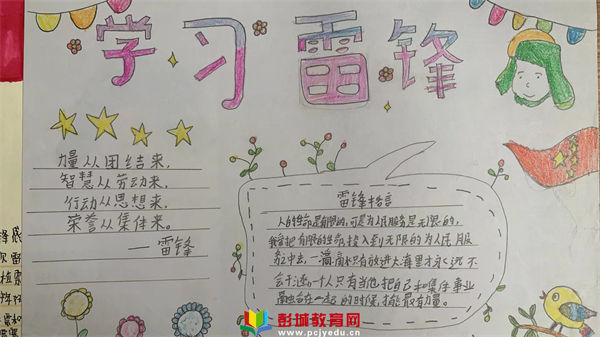 学习雷锋
力量从团结来,
智慧从劳动来,
行动从思想来,
荣誉从集体来。
—雷锋
雷锋格言
人的生命是有限的,可是为人民服务是无限的,
我要把有限的生命,投入到无限的为人民服
务之中去,一滴水只有放进大海里才永远不
会干涸,一个人只有当他把自己和集体事业
融合在一起的时候,才能最有力量。
彭城教育网
www.pcjyedu.cn